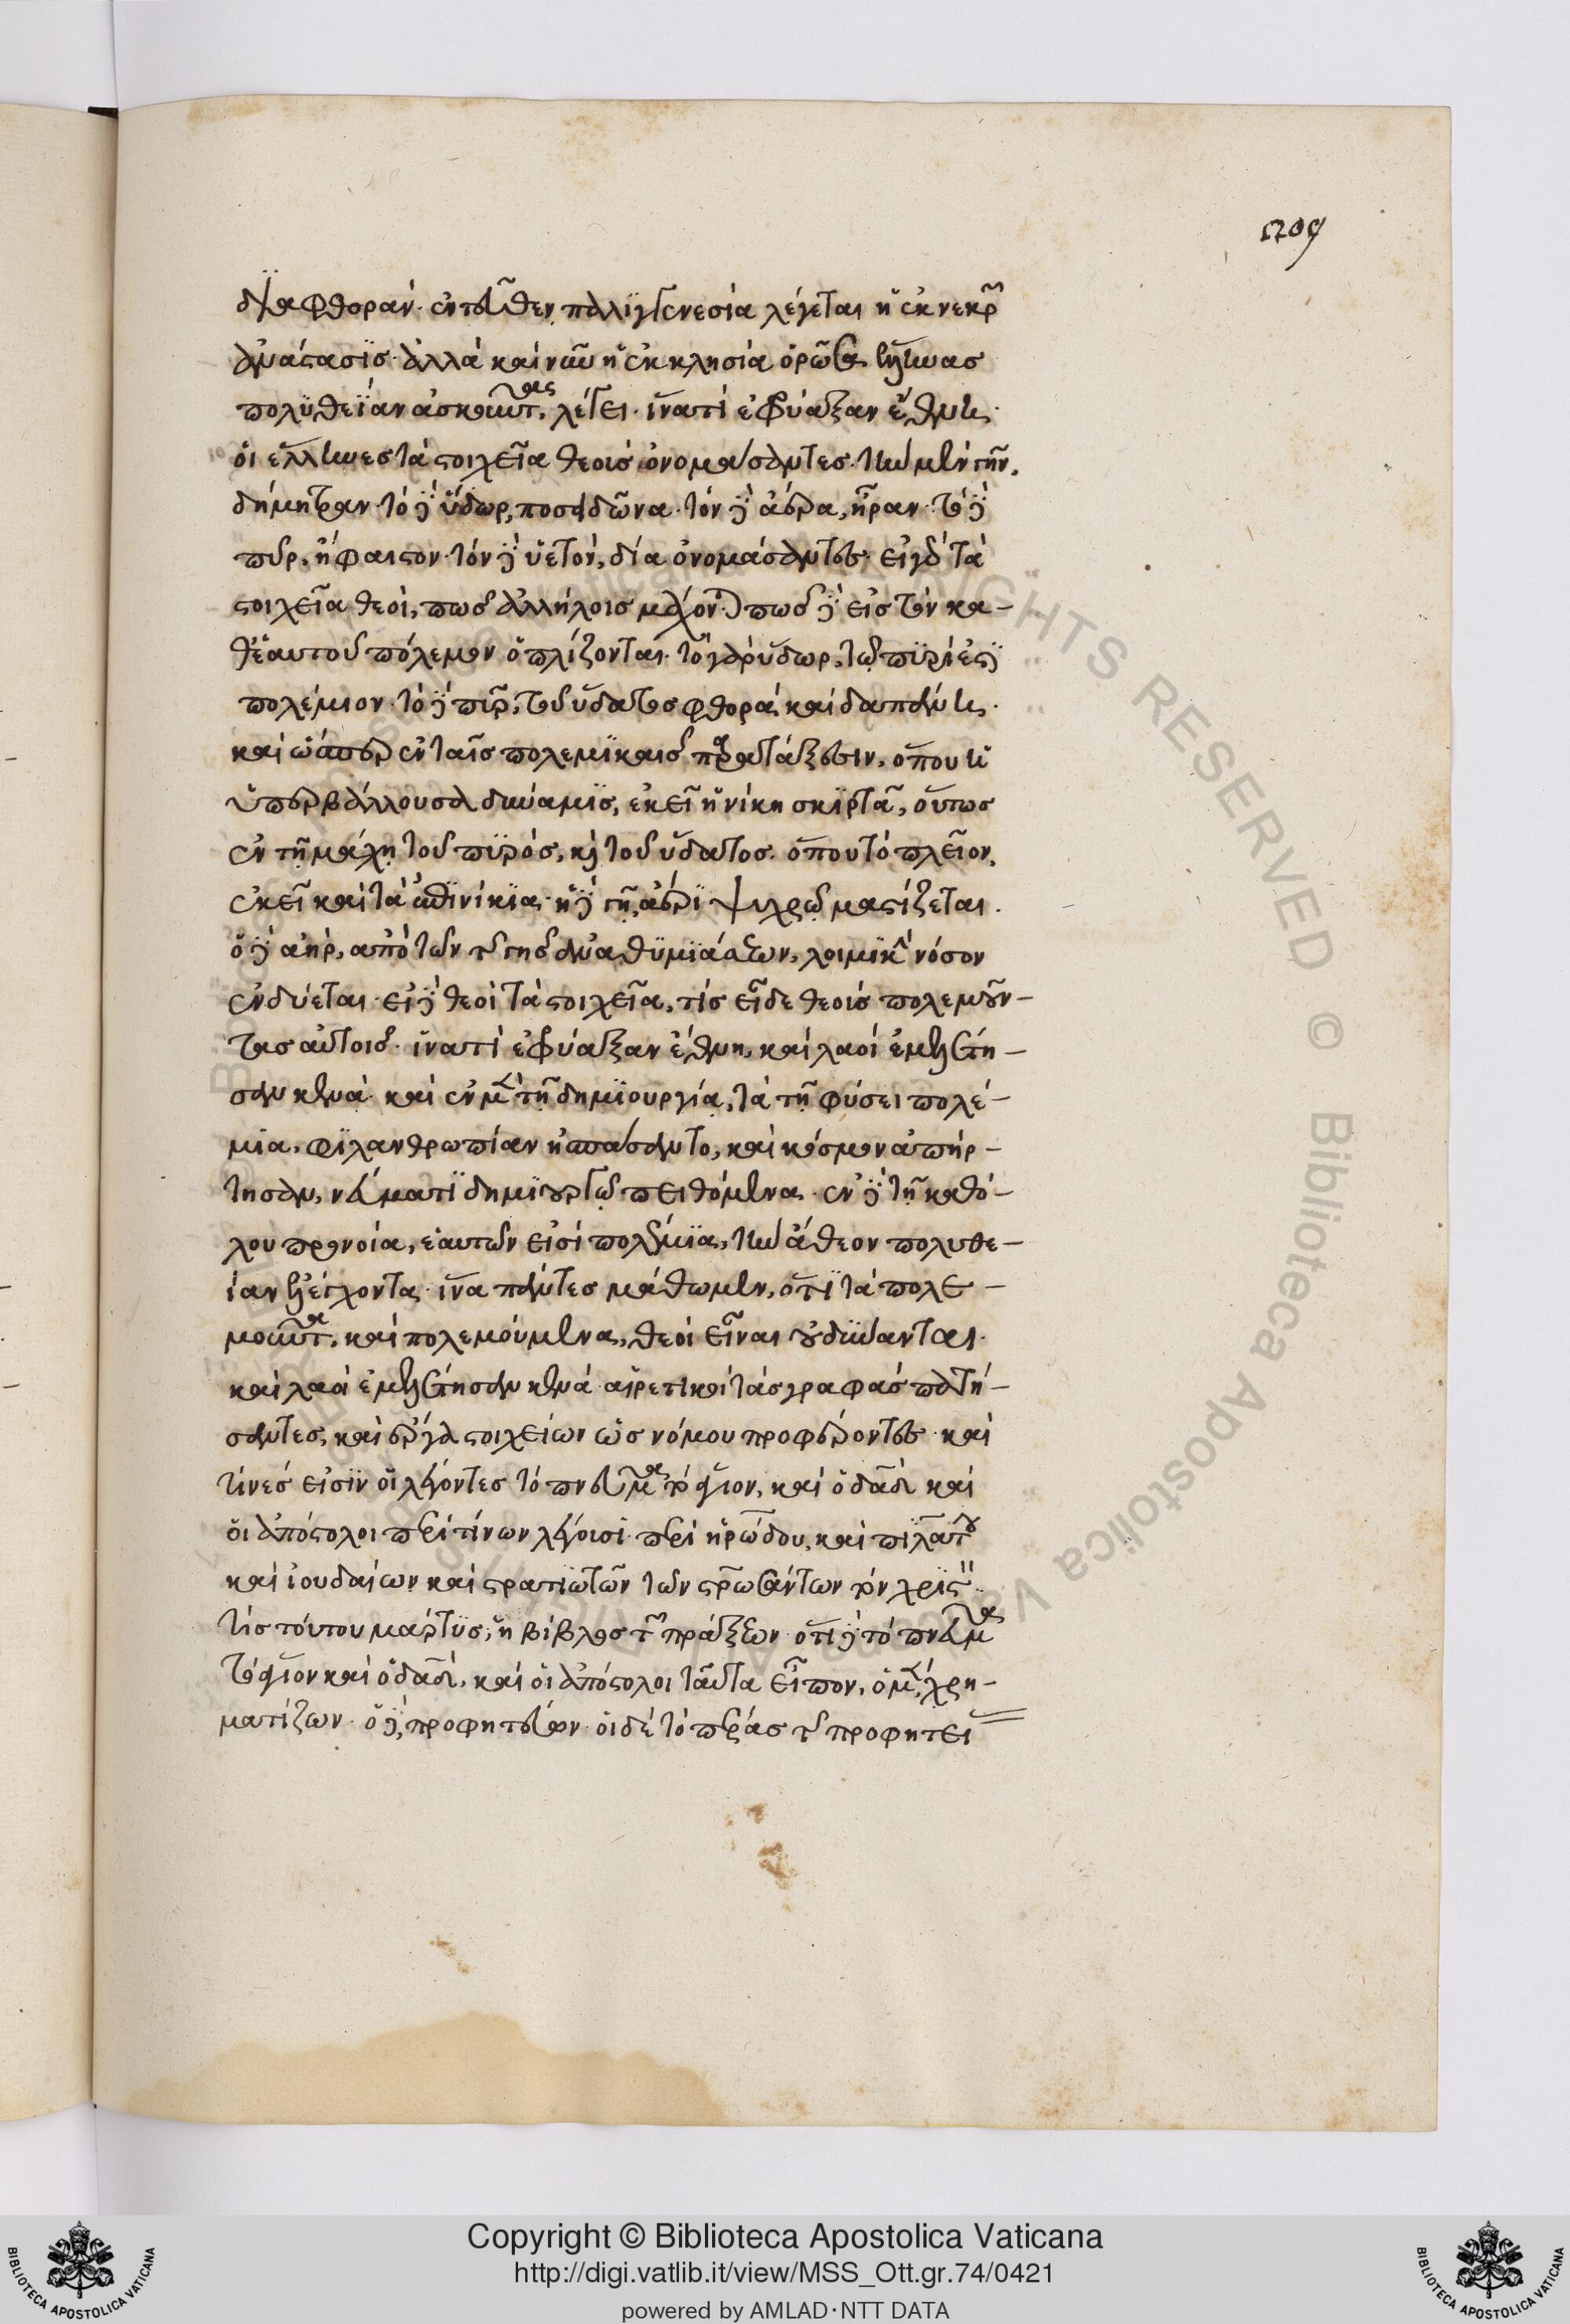 209
διαφθοράν. ἐντεῦθεν παλιγγενεσία λέγεται ἡ ἐκ νεκρῶν
ἀνάστασις. ἀλλὰ καὶ νῦν ἡ ἐκκλησία ὁρῶσα
πολυθεΐαν ἀσκοῦντας, λέγει. ἱνατί ἐφρύαξαν ἔθνη.
οἱ ἕλληνες τὰ στοιχεῖα θεοὺς ὀνομάσαντες. τὴν μὲν γῆν,
δήμητραν. τὸ δὲ ὕδωρ, ποσειδῶνα. τὸν δὲ ἀέρα, ἥραν. τὸ δὲ
πῦρ, ἥφαιστον. τὸν δὲ ὑετὸν, δία ὀνομάσαντες. εἰ γὰρ τὰ
στοιχεῖα θεοὶ, πῶς ἀλλήλοις μάχονται; πῶς δὲ εἰς τὸν κα-
θ' ἑαυτοὺς πόλεμον ὁπλίζονται. τὸ γὰρ ὕδωρ, τῷ πυρί ἐστι
πολέμιον. τὸ δὲ πῦρ, τοῦ ὕδατος φθορὰ καὶ δαπάνη.
καὶ ὥσπερ ἐν ταῖς πολεμικαῖς παρατάξεσιν, ὅπου ἡ
ὑπερβάλλουσα δύναμις, ἐκεῖ ἡ νίκη σκιρτᾶ, οὕτως
ἐν τῇ μάχῃ τοῦ πυρὸς, καὶ τοῦ ὕδατος. ὅπου τὸ πλεῖον,
ἐκεῖ καὶ τὰ ἐπινίκια. ἡ δὲ γῆ, ἀέρι ψυχρῷ μαστίζεται.
ὁ δὲ ἀὴρ, ἀπὸ τῶν τῆς γῆς ἀναθυμιάσεων, λοιμικὴν νόσον
ἐνδύεται. εἰ δὲ θεοὶ τὰ στοιχεῖα, τίς εἶδε θεοὺς πολεμοῦν-
τας αὑτοῖς. ἱνατί ἐφρύαξαν ἔθνη, καὶ λαοὶ ἐμελέτη-
σαν κενά. καὶ ἐν μὲν τῇ δημιουργίᾳ, τὰ τῇ φύσει πολέ-
μια, φιλανθρωπίαν ἠσπάσαντο, καὶ κόσμον ἀπήρ-
τησαν, νεύματι δημιουργῷ πειθόμενα. ἐν δὲ τῇ καθό-
λου προνοίᾳ, ἑαυτῶν εἰσὶ πολέμια, τὴν ἄθεον πολυθε-
ίαν ἐλέγχοντα. ἵνα πάντες μάθωμεν, ὅτι τὰ πολε-
μοῦντα, καὶ πολεμούμενα, θεοὶ εἶναι οὐ δύνανται.
καὶ λαοὶ ἐμελέτησαν κενά. αἱρετικοὶ τὰς γραφὰς πατή-
σαντες, καὶ ἔργα στοιχείων ὡς νόμου προφέροντες. καὶ
τίνες εἰσὶν οἱ λέγοντες τὸ πνεῦμα τὸ ἅγιον, καὶ ὁ δαδ καὶ
οἱ ἀπόστολοι περὶ τίνων λέγουσι. περὶ ἡρώδου, καὶ πιλάτου
καὶ ἰουδαίων καὶ στρατιωτῶν τῶν σταυρωσάντων τὸν χριστόν.
τίς τούτου μάρτυς; ἡ βίβλος τῶν πράξεων. ὅτι δὲ τὸ πνεῦμα
τὸ ἅγιον καὶ ὁ δαδ, καὶ οἱ ἀπόστολοι ταῦτα εἶπον, ὁ μὲν, χρη-
ματίζων. ὁ δὲ, προφητεύων. οἱ δὲ τὸ πέρας τῆς προφητεί
Copyright © Biblioteca Apostolica Vaticana
http://digi.vatlib.it/view/MSS_Ott.gr.74/0421
powered by AMLAD·NTT DATA
BIBLIOTECA APOSTOLICA VATICANA
BIBLIOTECA APOSTOLICA VATICANA